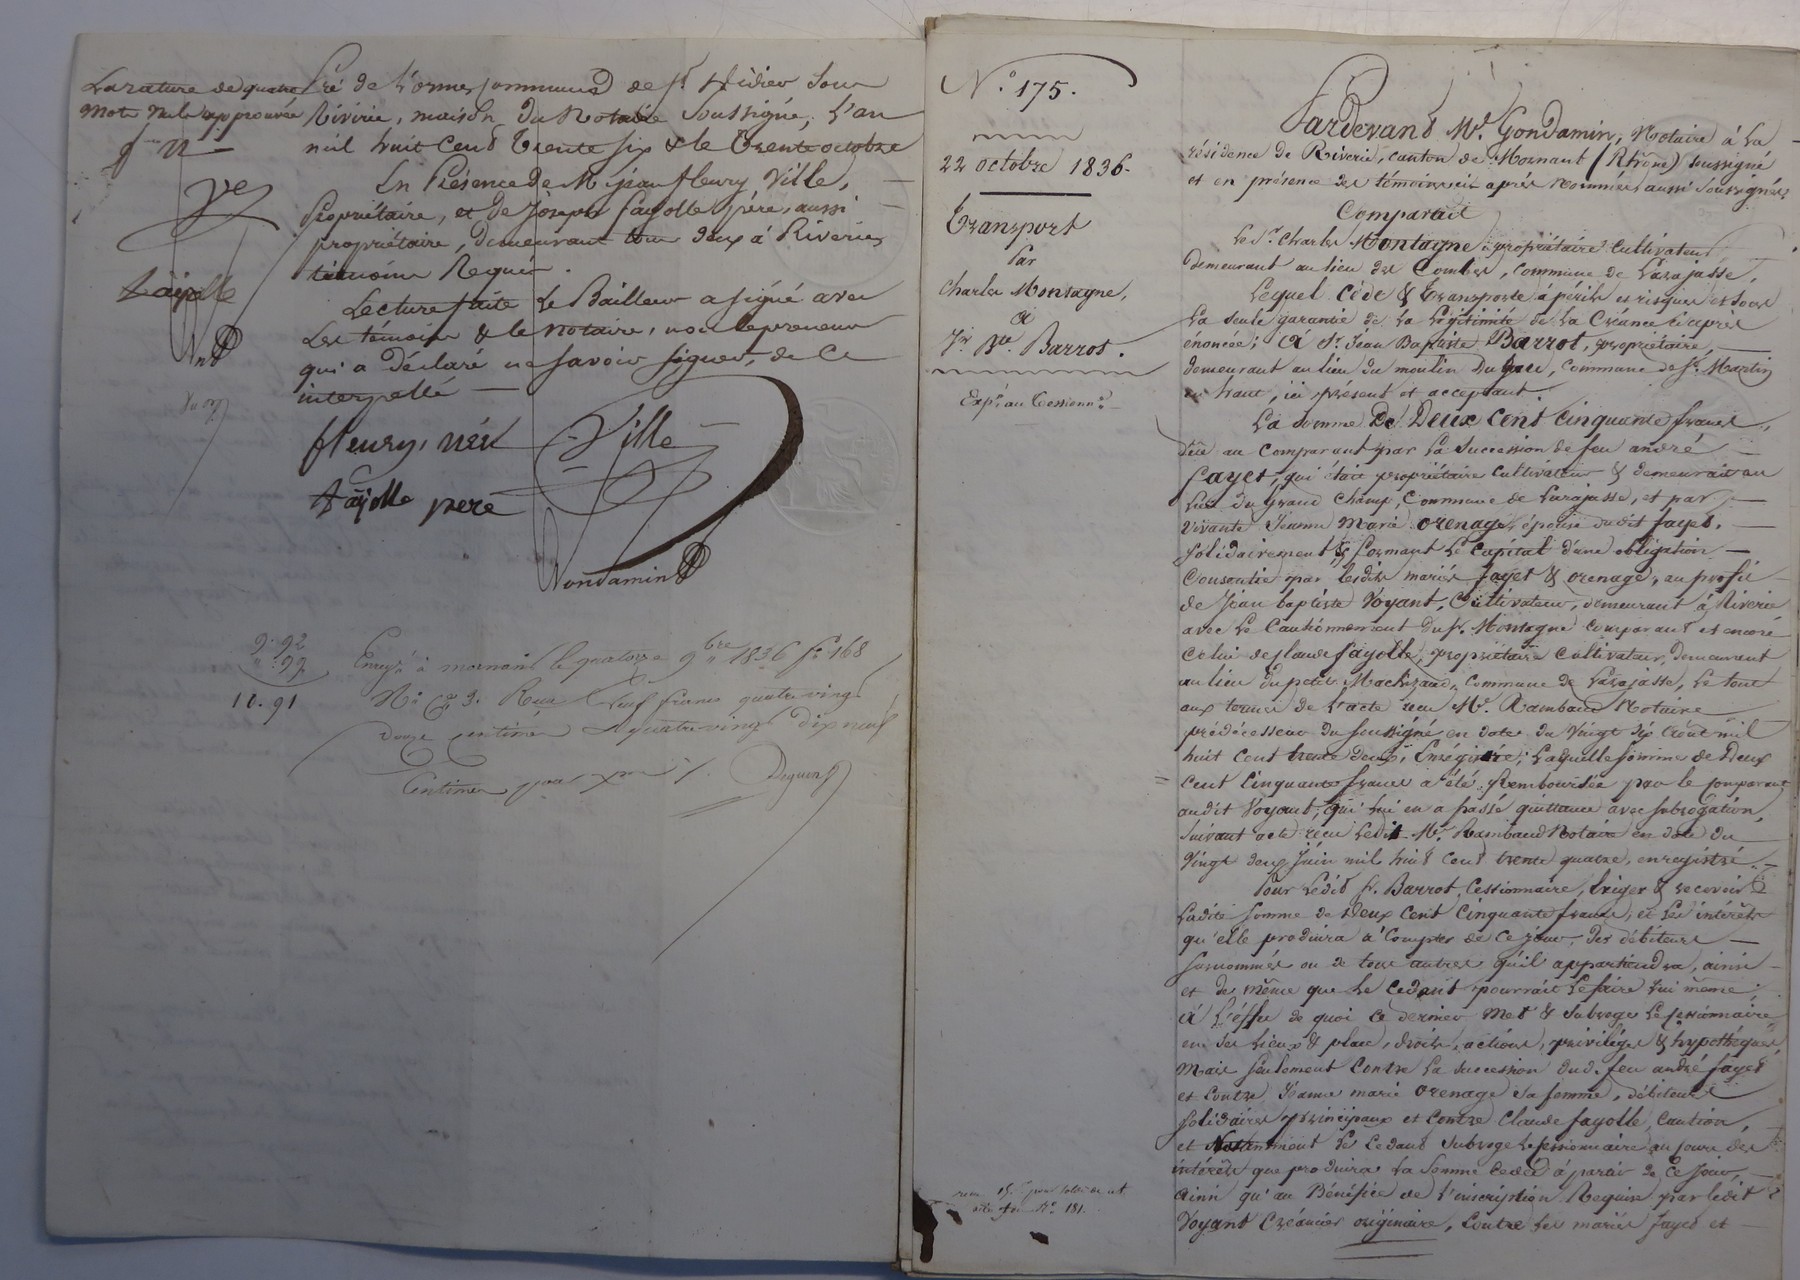 La rature de quatre
mots nuls approuvée
Pré de L'orme, commune de St. Didier sous
Riverie, maison du Notaire Soussigné, L'an
mil huit Cent Trente six & le Trente octobre
En Présence de Mr jean fleury Ville,
propriétaire, et de Joseph fayolle père, aussi
propriétaire, demeurant tous deux à Riverie,
témoins Requis.
Lecture faite Le Bailleur a signé avec
Les témoins & le notaire, non le preneur
qui a Déclaré ne savoir signer, de Ce
interpellé —
fleury Ville
fayolle pere
Gondamin
9. 92
99
10. 91
Enregé à mornant le quatorze 9bre 1836 fo 168
Reçu Neuf francs quatre vingt
douze centimes & quatre vingt dix neuf
Centimes pour
No. 175.
22 octobre 1836.
Transport
Par
Charles Montagne,
à
Jn. Bte. Barrot.
Expé. au Cessionn.re
No. 181.
Pardevant Me. Gondamin, Notaire à La
résidence de Riverie, canton de Mornant (Rhône) soussigné
et en présence des témoins ci-après Nommés aussi soussignés
Comparait
Le Sr. Charles Montagne, propriétaire Cultivateur,
demeurant au lieu des Combes, commune de Larajasse,
Lequel Cède & Transporte à périls et risques et sous
La seule garantie de La Légitimité de La Créance ci après
énoncée; à Sr. Jean Baptiste Barrot, propriétaire,
demeurant au lieu du moulin Du, Commune de St. Martin
en haut, ici présent et acceptant.
La somme De Deux Cent Cinquante francs,
Dûe au Comparant par La Succession de feu andré
fayet, qui était propriétaire Cultivateur & demeurait au
Lieu du grand Champ, Commune de Larajasse, et par
vivante Jeanne Marie orenage, épouse dudit fayet,
Solidairement & formant Le Capital d'une obligation
Consentie par lesdits mariés fayet & orenage, au profit
de Jean baptiste Voyant, Cultivateur, demeurant à Riverie
avec Le Cautionnement du Sr. Montagne Comparant et encore
Celui de Claude fayolle, propriétaire Cultivateur, demeurant
au lieu du petit, Commune de Larajasse, Le tout
aux termes de l'acte reçu Me. Rambaud Notaire
prédécesseur du soussigné en date du Vingt six août mil
huit Cent trente deux, Enrégistrée; Laquelle somme de Deux
Cent Cinquante francs a été Remboursée par le Comparant
audit Voyant, qui lui en a passé quittance avec subrogation,
suivant acte reçu Ledit Me. Rambaud Notaire en date du
Vingt deux Juin mil huit cent trente quatre, enregistré.
Pour Ledit Sr. Barrot, Cessionnaire, Exiger & recevoir
Ladite somme de Deux Cent Cinquante francs, et Les intérêts
qu'elle produira à Compter de Ce jour, Des débiteurs
surnommés ou de tous autres qu'il appartiendra, ainsi
et de même que Le Cédant pourrait Le faire Lui même;
à L'effet de quoi Ce dernier Met & subroge Le Cessionnaire
en ses Lieux & place, droits, actions, priviléges & hypothéques
Mais seulement Contre La succession dud. feu andré fayet
et Contre Jeanne marie orenage sa femme, débiteurs
solidaires principaux et Contre Claude fayolle, Caution,
et Notamment Le Cédant subroge Le Cessionnaire au cours des
intérêts que produira La somme Cédée à partir de Ce jour,
ainsi qu'au Bénéfice de L'inscription Requise par Ledit
Voyant Créancier originaire, Contre Les mariés fayet et